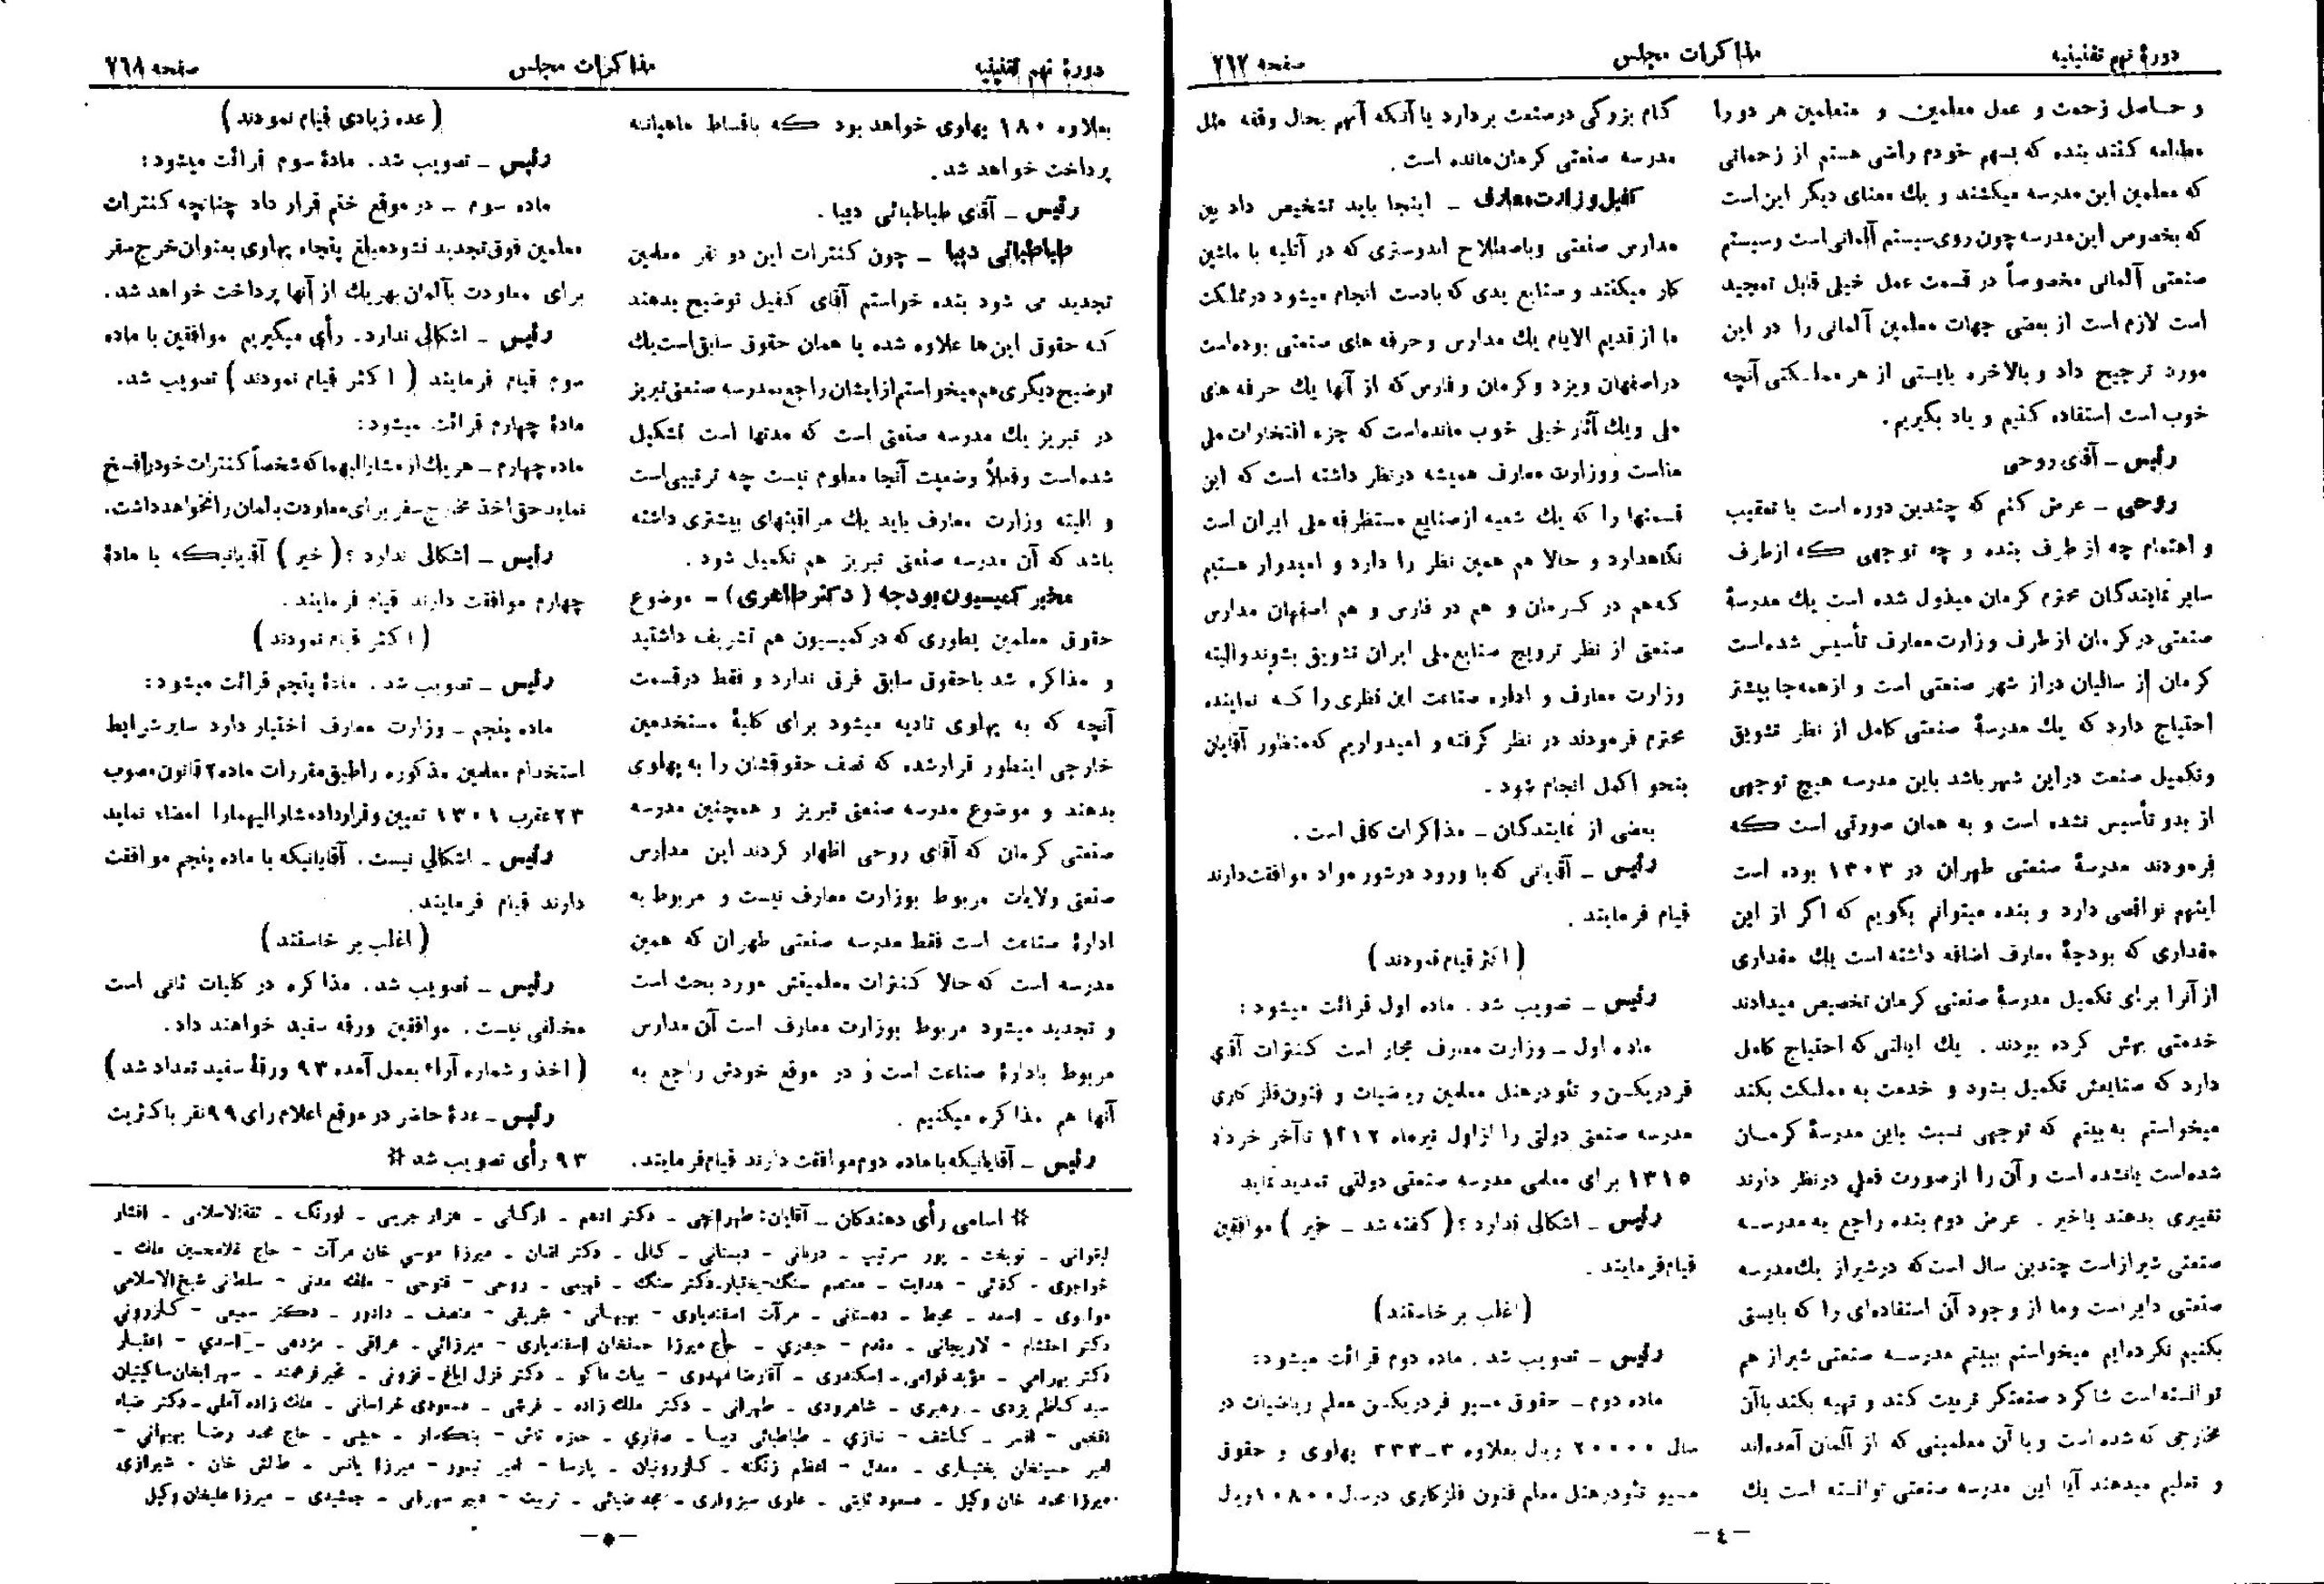 دورهٔ نهم تقنینیه
مذاکرات مجلس
صفحه ۷۶۷
و حاصل زحمت و عمل معلمین و متعلمین هر دو را
مطالعه کنند بنده که بسهم خودم راضی هستم از زحماتی
که معلمین این مدرسه میکشند و یك معنای دیگر این است
که بخصوص این مدرسه چون روی سیستم آلمانی است و سیستم
صنعتی آلمانی مخصوصاً در قسمت عمل خیلی قابل تمجید
است لازم است از بعضی جهات معلمین آلمانی را در این
مورد ترجیح داد و بالاخره بایستی از هر مملکتی آنچه
خوب است استفاده کنیم و یاد بگیریم.
رئیس - آقای روحی
روحی - عرض کنم که چندین دوره است با تعقیب
و اهتمام چه از طرف بنده و چه توجهی که از طرف
سایر نمایندگان محترم کرمان مبذول شده است یك مدرسهٔ
صنعتی در کرمان از طرف وزارت معارف تأسیس شده است
کرمان از سالیان دراز شهر صنعتی است و از همه جا بیشتر
احتیاج دارد که یك مدرسهٔ صنعتی کامل از نظر تشویق
و تکمیل صنعت در این شهر باشد باین مدرسه هیچ توجهی
از بدو تأسیس نشده است و به همان صورتی است که
فرمودند مدرسهٔ صنعتی طهران در ۱۳۰۳ بوده است
اینهم نواقصی دارد و بنده میتوانم بگویم که اگر از این
مقداری که بودجهٔ معارف اضافه داشته است یك مقداری
از آنرا برای تکمیل مدرسهٔ صنعتی کرمان تخصیص میدادند
خدمتی بهش کرده بودند . یك ایالتی که احتیاج کامل
دارد که صنایعش تکمیل بشود و خدمت به مملکت بکند
میخواستم به بینم که توجهی نسبت باین مدرسهٔ کرمان
شده است یا نشده است و آن را از صورت فعلی در نظر دارند
تغییری بدهند یا خیر . عرض دوم بنده راجع به مدرسه
صنعتی شیراز است چندین سال است که در شیراز یك مدرسه
صنعتی دایر است و ما از وجود آن استفاده‌ای را که بایستی
بکنیم نکرده‌ایم میخواستم ببینم مدرسه صنعتی شیراز هم
توانسته است شاگرد صنعتگر تربیت کند و تهیه بکند با آن
مخارجی که شده است و با آن معلمینی که از آلمان آمده‌اند
و تعلیم میدهند آیا این مدرسه صنعتی توانسته است یك
گام بزرگی در صنعت بردارد یا آنکه آنهم بحال وقفه مثل
مدرسه صنعتی کرمان مانده است .
کفیل وزارت معارف - اینجا باید تشخیص داد بین
مدارس صنعتی و باصطلاح اندوستری که در آتلیه با ماشین
کار میکنند و صنایع یدی که با دست انجام میشود در مملکت
ما از قدیم الایام یك مدارس و حرفه های صنعتی بوده است
در اصفهان و یزد و کرمان و فارس که از آنها یك حرفه های
ملی و یك آثار خیلی خوب مانده است که جزء افتخارات ملی
ماست و وزارت معارف همیشه در نظر داشته است که این
قسمتها را که یك شعبه از صنایع مستظرفه ملی ایران است
نگاهدارد و حالا هم همین نظر را دارد و امیدوار هستیم
که هم در کرمان و هم در فارس و هم اصفهان مدارس
صنعتی از نظر ترویج صنایع ملی ایران تشویق بشوند والبته
وزارت معارف و اداره صناعت این نظری را که نماینده
محترم فرمودند در نظر گرفته و امیدواریم که منظور آقایان
بنحو اکمل انجام شود .
بعضی از نمایندگان - مذاکرات کافی است .
رئیس - آقایانی که با ورود در شور مواد موافقت دارند
قیام فرمایند .
(اکثر قیام نمودند)
رئیس - تصویب شد . ماده اول قرائت میشود :
ماده اول - وزارت معارف مجاز است کنترات آقای
فردریکسن و تئودرهنل معلمین ریاضیات و فنون فلز کاری
مدرسه صنعتی دولتی را از اول تیرماه ۱۳۱۲ تا آخر خرداد
۱۳۱۵ برای معلمی مدرسه صنعتی دولتی تمدید نماید
رئیس - اشکالی ندارد ؟ (گفته شد - خیر) موافقین
قیام فرمایند .
(اغلب برخاستند)
رئیس - تصویب شد . ماده دوم قرائت میشود:
ماده دوم - حقوق مسیو فردریکسن معلم ریاضیات در
سال ۲۰۰۰۰ ریال بعلاوه ۳-۳۳۳ پهلوی و حقوق
مسیو تئودرهنل معلم فنون فلزکاری در سال ۱۰۸۰۰ ریال
- ٤ -
دورهٔ نهم تقنینیه
مذاکرات مجلس
صفحه ۷۶۸
بعلاوه ۱۸۰ پهلوی خواهد بود که باقساط ماهیانه
پرداخت خواهد شد .
رئیس - آقای طباطبائی دیبا .
طباطبائی دیبا - چون کنترات این دو نفر معلمین
تجدید می شود بنده خواستم آقای کفیل توضیح بدهند
که حقوق این ها علاوه شده یا همان حقوق سابق است یك
توضیح دیگری هم میخواستم از ایشان راجع بمدرسه صنعتی تبریز
در تبریز یك مدرسه صنعتی است که مدتها است تشکیل
شده است و فعلاً وضعیت آنجا معلوم نیست چه ترتیبی است
و البته وزارت معارف باید یك مراقبتهای بیشتری داشته
باشد که آن مدرسه صنعتی تبریز هم تکمیل شود .
مخبر کمیسیون بودجه (دکتر طاهری) - موضوع
حقوق معلمین بطوری که در کمیسیون هم تشریف داشتید
و مذاکره شد با حقوق سابق فرق ندارد و فقط در قسمت
آنچه که به پهلوی تادیه میشود برای کلیهٔ مستخدمین
خارجی اینطور قرار شده که نصف حقوقشان را به پهلوی
بدهند و موضوع مدرسه صنعتی تبریز و همچنین مدرسه
صنعتی کرمان که آقای روحی اظهار کردند این مدارس
صنعتی ولایات مربوط بوزارت معارف نیست و مربوط به
ادارهٔ صناعت است فقط مدرسه صنعتی طهران که همین
مدرسه است که حالا کنترات معلمینش مورد بحث است
و تجدید میشود مربوط بوزارت معارف است آن مدارس
مربوط بادارهٔ صناعت است و در موقع خودش راجع به
آنها هم مذاکره میکنیم .
رئیس - آقایانیکه با ماده دوم موافقت دارند قیام فرمایند.
(عده زیادی قیام نمودند)
رئیس - تصویب شد . مادهٔ سوم قرائت میشود:
ماده سوم - در موقع ختم قرار داد چنانچه کنترات
معلمین فوق تجدید نشود مبلغ پنجاه پهلوی بعنوان خرج سفر
برای معاودت بآلمان بهریك از آنها پرداخت خواهد شد.
رئیس - اشکالی ندارد . رأی میگیریم موافقین با ماده
سوم قیام فرمایند (اکثر قیام نمودند) تصویب شد.
مادهٔ چهارم قرائت میشود:
ماده چهارم - هر یك از مشارالیهما که شخصاً کنترات خود را فسخ
نماید حق اخذ مخارج سفر برای معاودت بآلمان را نخواهد داشت.
رئیس - اشکالی ندارد ؟ (خیر) آقایانیکه با مادهٔ
چهارم موافقت دارند قیام فرمایند .
(اکثر قیام نمودند)
رئیس - تصویب شد . مادهٔ پنجم قرائت میشود:
ماده پنجم - وزارت معارف اختیار دارد سایر شرایط
استخدام معلمین مذکوره را طبق مقررات ماده ۲ قانون مصوب
۲۳ عقرب ۱۳۰۱ تعیین و قرارداد مشارالیهما را امضاء نماید
رئیس - اشکالی نیست . آقایانیکه با ماده پنجم موافقت
دارند قیام فرمایند.
(اغلب بر خاستند)
رئیس - تصویب شد . مذاکره در کلیات ثانی است
مخالفی نیست . موافقین ورقه سفید خواهند داد.
(اخذ و شماره آراء بعمل آمده ۹۳ ورقهٔ سفید تعداد شد)
رئیس - عدهٔ حاضر در موقع اعلام رأی ۹۹ نفر باکثریت
۹۳ رأی تصویب شد *
* اسامی رأی دهندگان - آقایان: طهرانچی - دکتر ادهم - ارگانی - هزار جریبی - اورنگ - ثقةالاسلامی - افشار
لیقوانی - نوبخت - پور سرتیپ - دربانی - دبستانی - کمالی - دکتر لقمان - میرزا موسی خان مرآت - حاج غلامحسین ملك -
خواجوی - کفائی - هدایت - معتصم سنگ - بختیار - دکتر سنگ - فهیمی - روحی - فتوحی - ملك مدنی - سلطانی شیخ الاسلامی
مولوی - اسعد - محیط - دهستانی - مرآت اسفندیاری - بهبهانی - شریفی - منصف - دادور - دکتر سمیعی - کازرونی
دکتر احتشام - لاریجانی - مقدم - حیدری - حاج میرزا حسنخان اسفندیاری - میرزائی - عراقی - مؤدهی - اسدی - اعتبار
دکتر بهرامی - مؤید قوامی - اسکندری - آقارضا مهدوی - بیات ماکو - دکتر قزل ایاغ - قزونی - مخبر فرهمند - سهرابخان ساگینیان
سید کاظم یزدی - رهبری - شاهرودی - طهرانی - دکتر ملك زاده - فرشی - مسعودی خراسانی - ملك زاده آملی - دکتر ضیاء
افخمی - افسر - کاشف - نمازی - طباطبائی دیبا - صفاری - حمزه تاش - بنکدار - حبیبی - حاج محمد رضا بهبهانی -
امیر حسینخان بختیاری - معدل - اعظم زنگنه - کازرونیان - پارسا - امیر تیمور - میرزا یانس - طالش خان - شیرازی
میرزا محمد خان وکیل - مسعود ثابتی - علوی سبزواری - مجد ضیائی - تربیت - دبیر سهرابی - جمشیدی - میرزا علیخان وکیل
- ٥ -